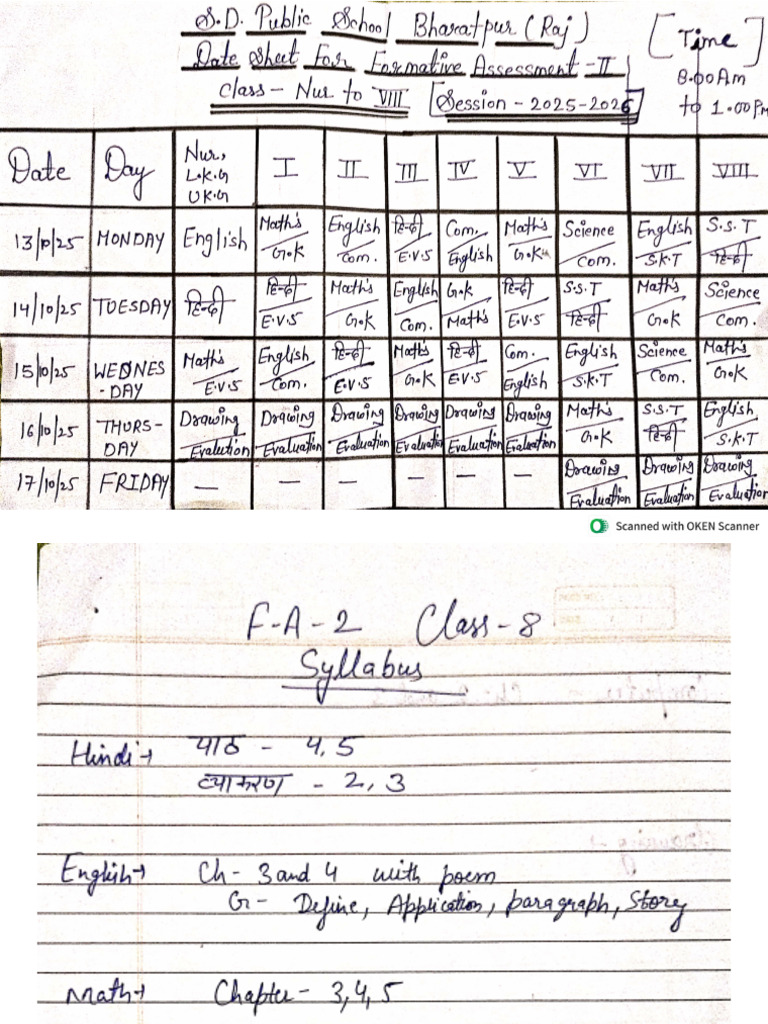 S.D. Public School Bharatpur (Raj)
Date Sheet For Formative Assessment -II
Class - Nur to VIII [Session - 2025-2026]
[Time]
8.00Am
to 1.00Pm
Date Day Nur, L.K.G U.K.G I II III IV V VI VII VIII
13/10/25 MONDAY English Maths/G.K English/Com. हिन्दी/E.V.S Com./English Maths/G.K Science/Com. English/S.K.T S.S.T/हिन्दी
14/10/25 TUESDAY हिन्दी हिन्दी/E.V.S Maths/G.K English/Com. G.K/Maths हिन्दी/E.V.S S.S.T/हिन्दी Maths/G.K Science/Com.
15/10/25 WEDNES-DAY Maths/E.V.S English/Com. हिन्दी/E.V.S Maths/G.K हिन्दी/E.V.S Com./English English/S.K.T Science/Com. Maths/G.K
16/10/25 THURS-DAY Drawing/Evalution Drawing/Evaluation Drawing/Evaluation Drawing/Evaluation Drawing/Evaluation Drawing/Evaluation Maths/G.K S.S.T/हिन्दी English/S.K.T
17/10/25 FRIDAY — — — — — — Drawing/Evaluation Drawing/Evaluation Drawing/Evaluation
Scanned with OKEN Scanner
F-A-2 Class-8
Syllabus
Hindi→ पाठ - 4,5
व्याकरण - 2,3
English→ Ch- 3 and 4 with poem
G- Define, Application, paragraph, Story
Math→ Chapter- 3,4,5